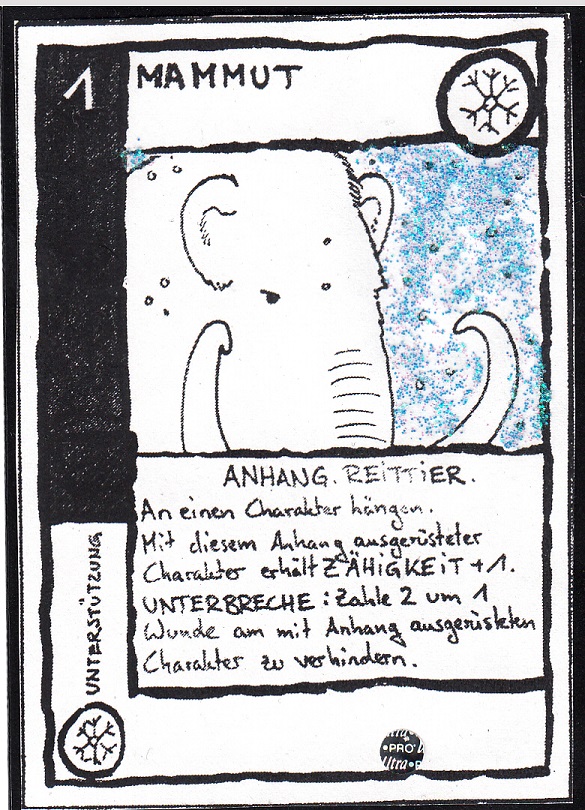 1
MAMMUT
ANHANG. REITTIER.
An einen Charakter hängen.
Mit diesem Anhang ausgerüsteter
Charakter erhält ZÄHIGKEIT +1.
UNTERBRECHE: Zahle 2 um 1
Wunde am mit Anhang ausgerüsteten
Charakter zu verhindern.
UNTERSTÜTZUNG
•PRO
Ultra•P